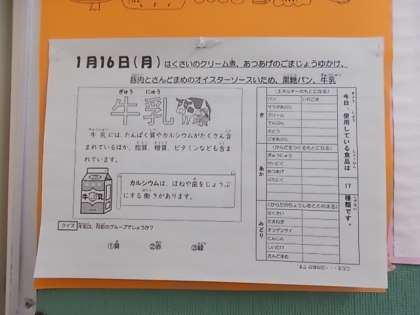 1月16日(月) はくさいのクリーム煮、あつあげのごまじょうゆかけ、
豚肉とさんどまめのオイスターソースいため、黒糖パン、牛乳
ぎゅう にゅう
牛乳
牛乳には、たんぱく質やカルシウムがたくさん含
まれているほか、脂質、糖質、ビタミンなども含ま
れています。
カルシウムは、ほねや歯をじょうぶ
にする働きがあります。
牛乳
クイズ 牛乳は、何色のグループでしょうか?
①黄 ②赤 ③緑
今日、使用している食品は
17
種類です。
き
(エネルギーのもとになる)
パン
クリーム
あか
(からだをつくるもとになる)
ぎゅうにゅう
あつあげ
みどり
はくさい
たまねぎ
にんじん
さんどまめ